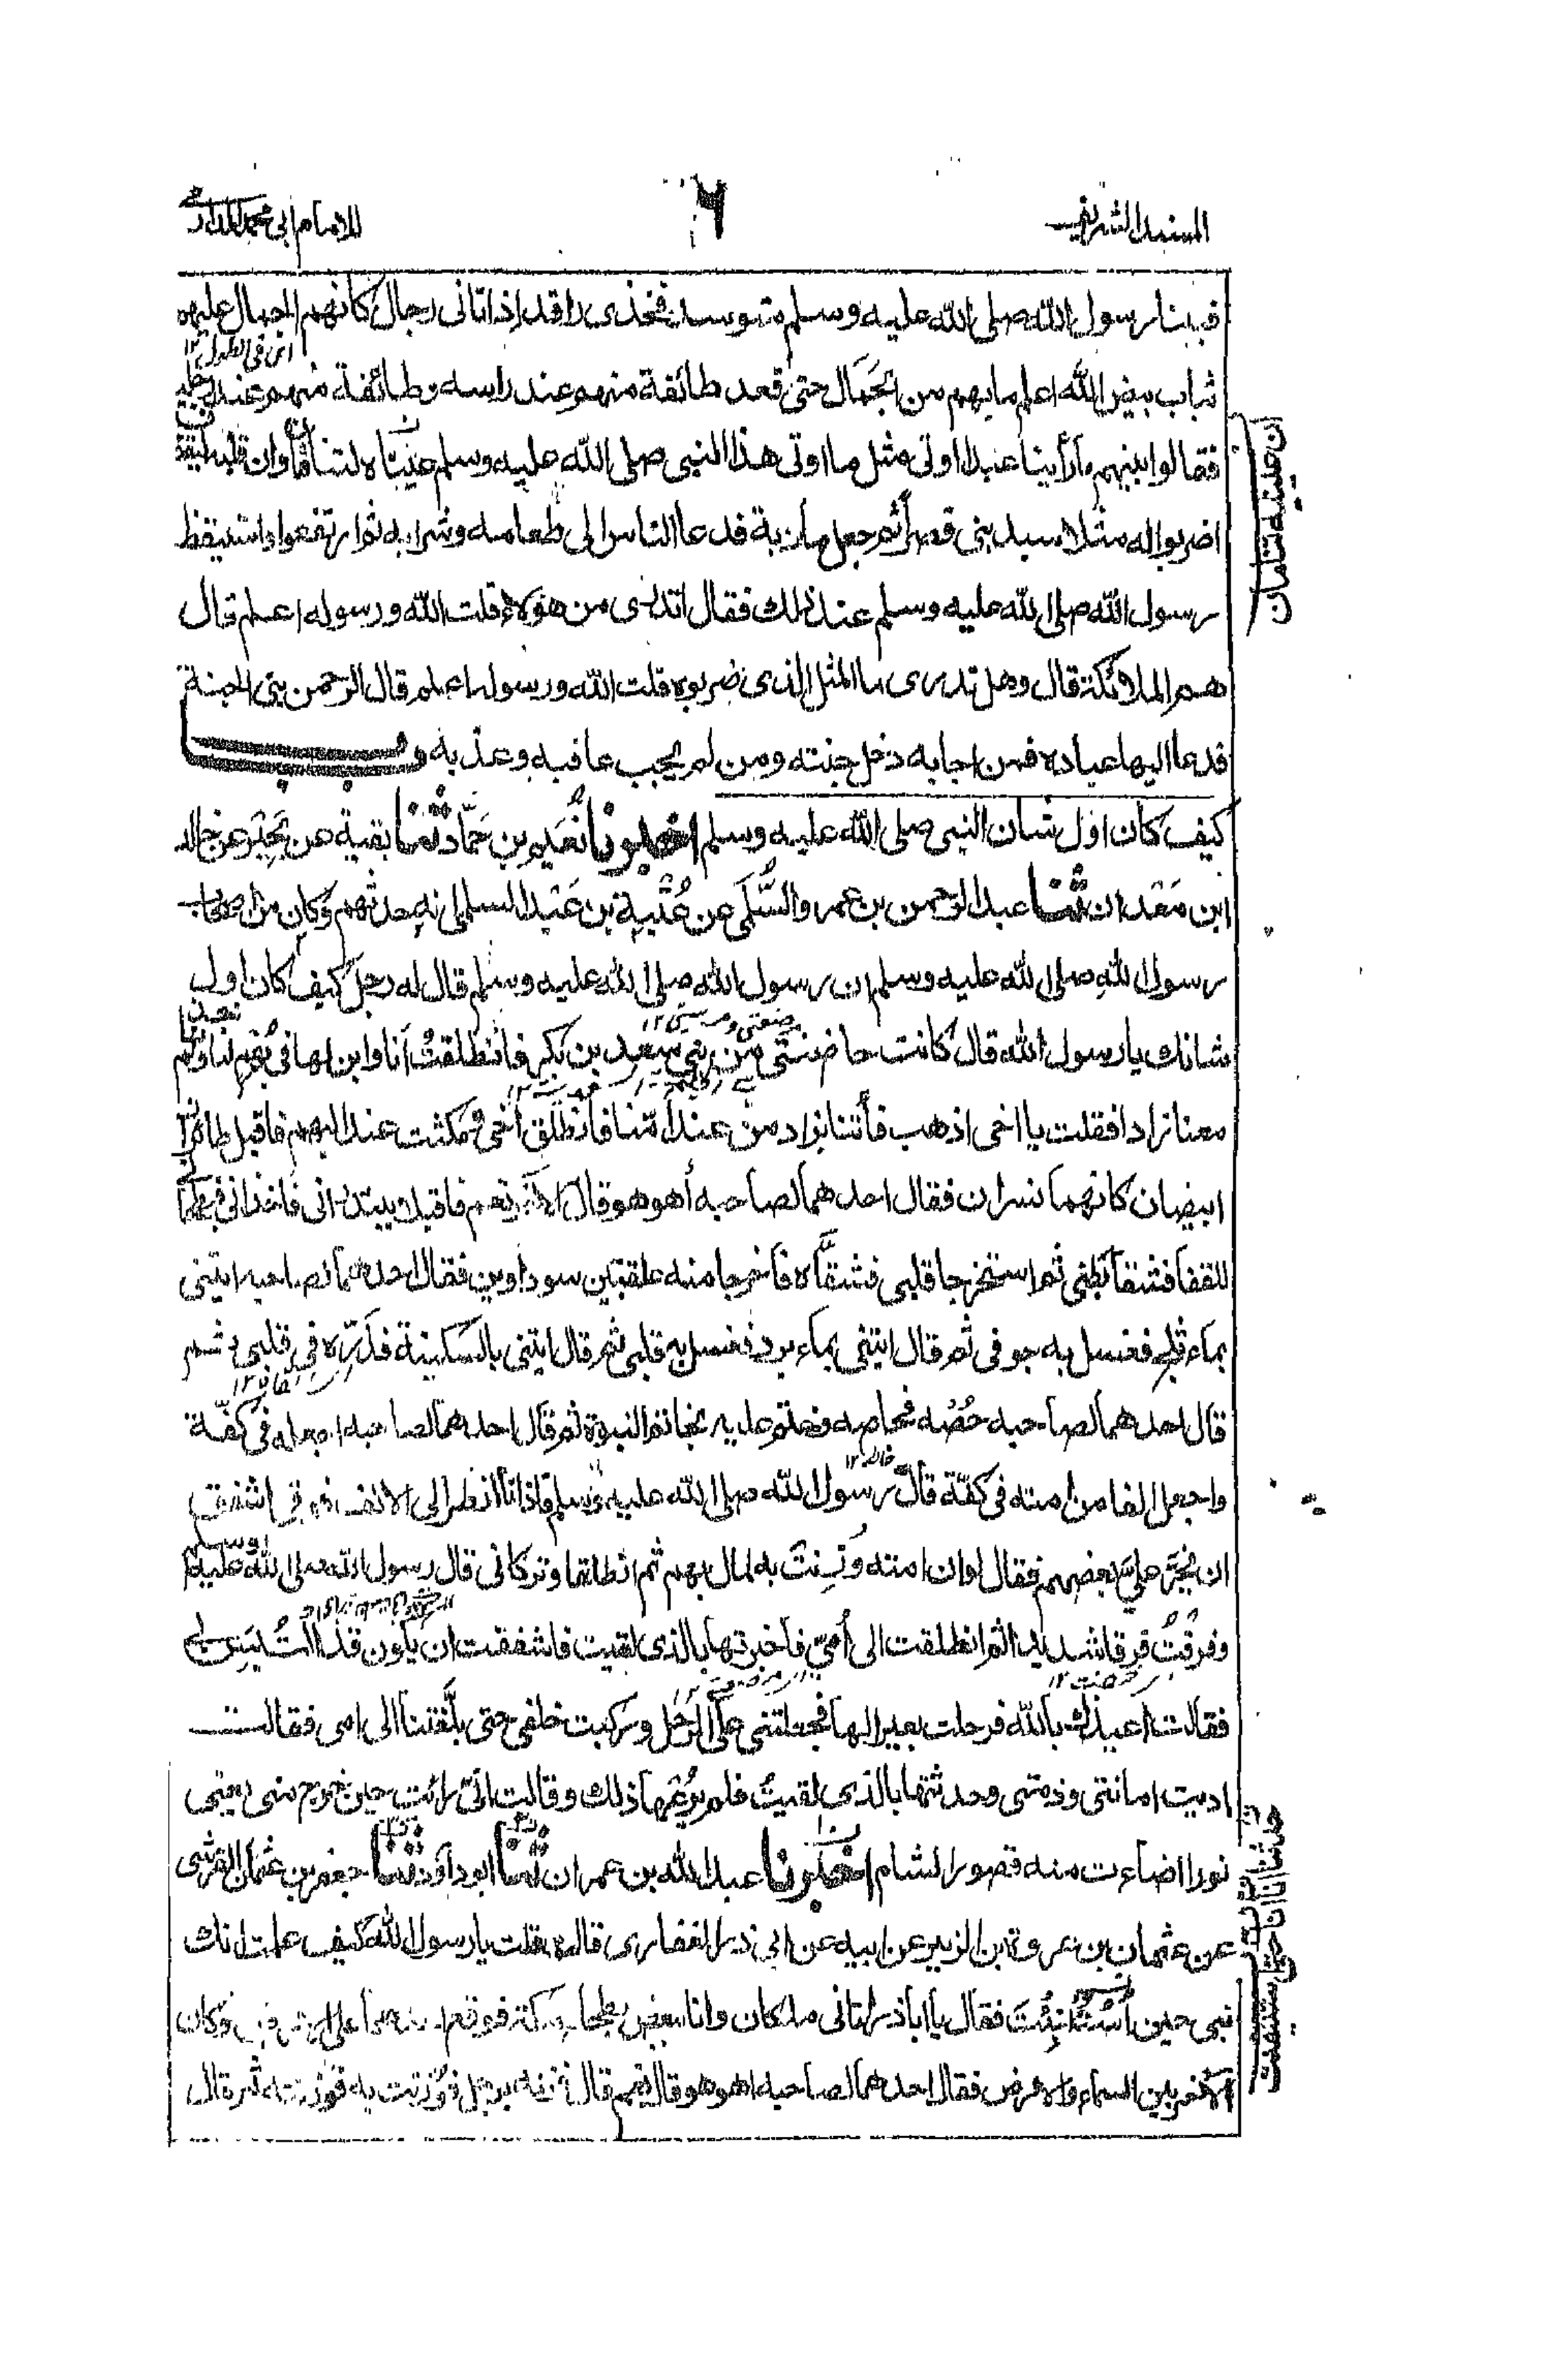 المسند الشريف
٦
للامام ابي محمد الدارمي
فبينا رسول الله صلى الله عليه وسلم متوسد فخذى راقد اذ اتانى رجال كانهم الجمال عليهم
ثياب بيض الله اعلم ما بهم من الجمال حتى قعد طائفة منهم عند راسه وطائفة منهم عند رجليه
فقالوا بينهم ما رأينا عبدا اوتى مثل ما اوتى هذا النبى صلى الله عليه وسلم عيناه لتنامان وان قلبه ليقظ
اضربوا له مثلا سيد بنى قصرا ثم جعل مأدبة فدعا الناس الى طعامه وشرابه ثم ارتفعوا واستيقظ
رسول الله صلى الله عليه وسلم عند ذلك فقال اتدرى من هؤلاء قلت الله ورسوله اعلم قال
هم الملائكة قال وهل تدرى ما المثل الذى ضربوه قلت الله ورسوله اعلم قال الرحمن بنى الجنة
فدعا اليها عباده فمن اجابه دخل جنته ومن لم يجب عاقبه وعذبه
كيف كان اول شان النبى صلى الله عليه وسلم اخبرنا نعيم بن حماد ثنا بقية عن بحير عن خالد
ابن معدان ثنا عبد الرحمن بن عمرو السلمى عن عتبة بن عبد السلمى انه حدثهم وكان من اصحاب
رسول الله صلى الله عليه وسلم ان رسول الله صلى الله عليه وسلم قال له رجل كيف كان اول
شانك يا رسول الله قال كانت حاضنتى من بنى سعد بن بكر فانطلقت انا وابن لها فى بهم لنا ولم
معنا زادا فقلت يا اخى اذهب فأتنا بزاد من عند امنا فانطلق اخى ومكثت عند البهم فاقبل طائران
ابيضان كانهما نسران فقال احدهما لصاحبه أهو هو قال الاخر نعم فاقبلا يبتدرانى فاخذانى فبطحانى
للقفا فشقا بطنى ثم استخرجا قلبى فشقاه فاخرجا منه علقتين سوداوين فقال احدهما لصاحبه ايتنى
بماء ثلج فغسل به جوفى ثم قال ايتنى بماء برد فغسل به قلبى ثم قال ايتنى بالسكينة فذره فى قلبى ثم
قال احدهما لصاحبه حصه فحاصه وختم عليه بخاتم النبوة ثم قال احدهما لصاحبه اجعله فى كفة
واجعل الفا من امته فى كفة قال رسول الله صلى الله عليه وسلم فاذا انا انظر الى الالف فوقى اشفق
ان يخر على بعضهم فقال لو ان امته وزنت به لمال بهم ثم انطلقا وتركانى قال رسول الله صلى الله عليه وسلم
وفرقت فرقا شديدا ثم انطلقت الى أمى فاخبرتها بالذى لقيت فاشفقت ان يكون قد التبس بى
فقالت اعيذك بالله فرحلت بعيرا لها فجعلتنى على الرحل وركبت خلفى حتى بلغتنا الى امى فقالت
اديت امانتى وذمتى وحدثتها بالذى لقيت فلم يرعها ذلك وقالت انى رأيت حين خرج منى يعنى
نورا اضاءت منه قصور الشام اخبرنا عبد الله بن عمران ثنا ابو داود ثنا جعفر بن عثمان القرشى
عن عثمان بن عروة بن الزبير عن ابيه عن ابى ذر الغفارى قال قلت يا رسول الله كيف علمت انك
نبى حين استنبئت فقال يا اباذر اتانى ملكان وانا ببعض بطحاء مكة فوقع احدهما على الارض وكان
الآخر بين السماء والارض فقال احدهما لصاحبه اهو هو قال نعم قال فزنه برجل فوزنت به فوزنته ثم قال